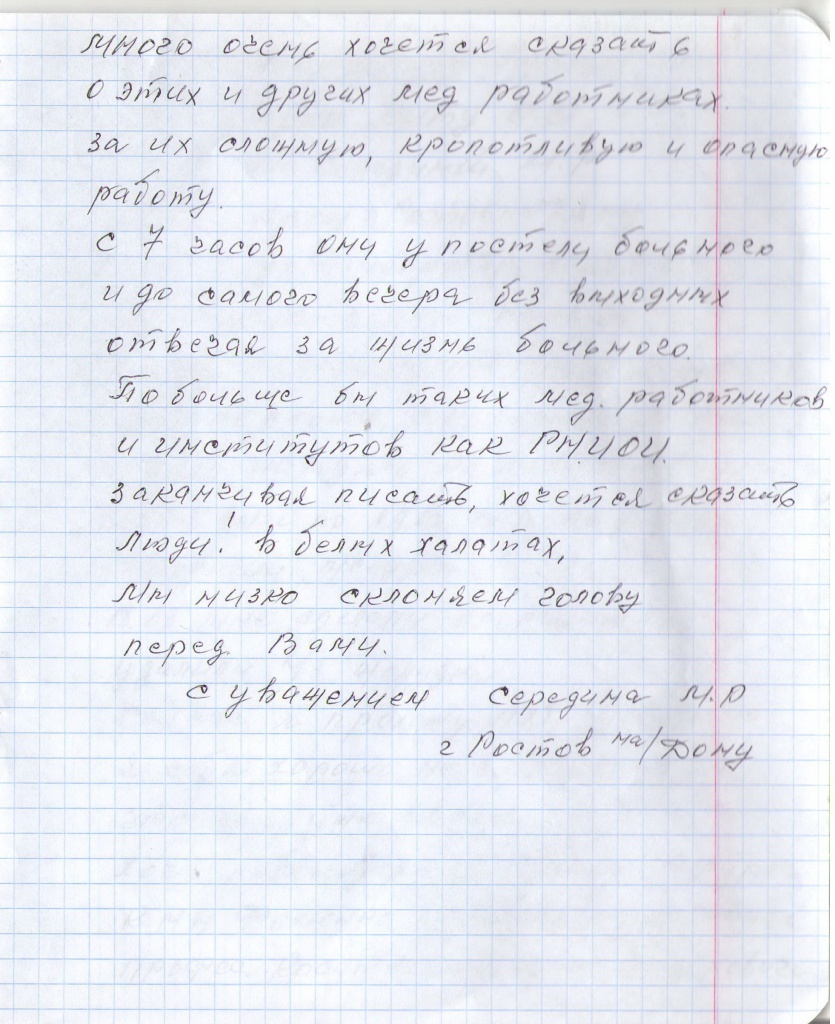 много очень хочется сказать
о этих и других мед работниках.
за их сложную, кропотливую и опасную
работу.
с 7 часов они у постели больного
и до самого вечера без выходных
отвечая за жизнь больного.
Побольше бы таких мед. работников
и институтов как РНИОИ.
заканчивая писать, хочется сказать
люди! в белых халатах,
мы низко склоняем голову
перед Вами.
с уважением Середина М.Р
г Ростов на/Дону